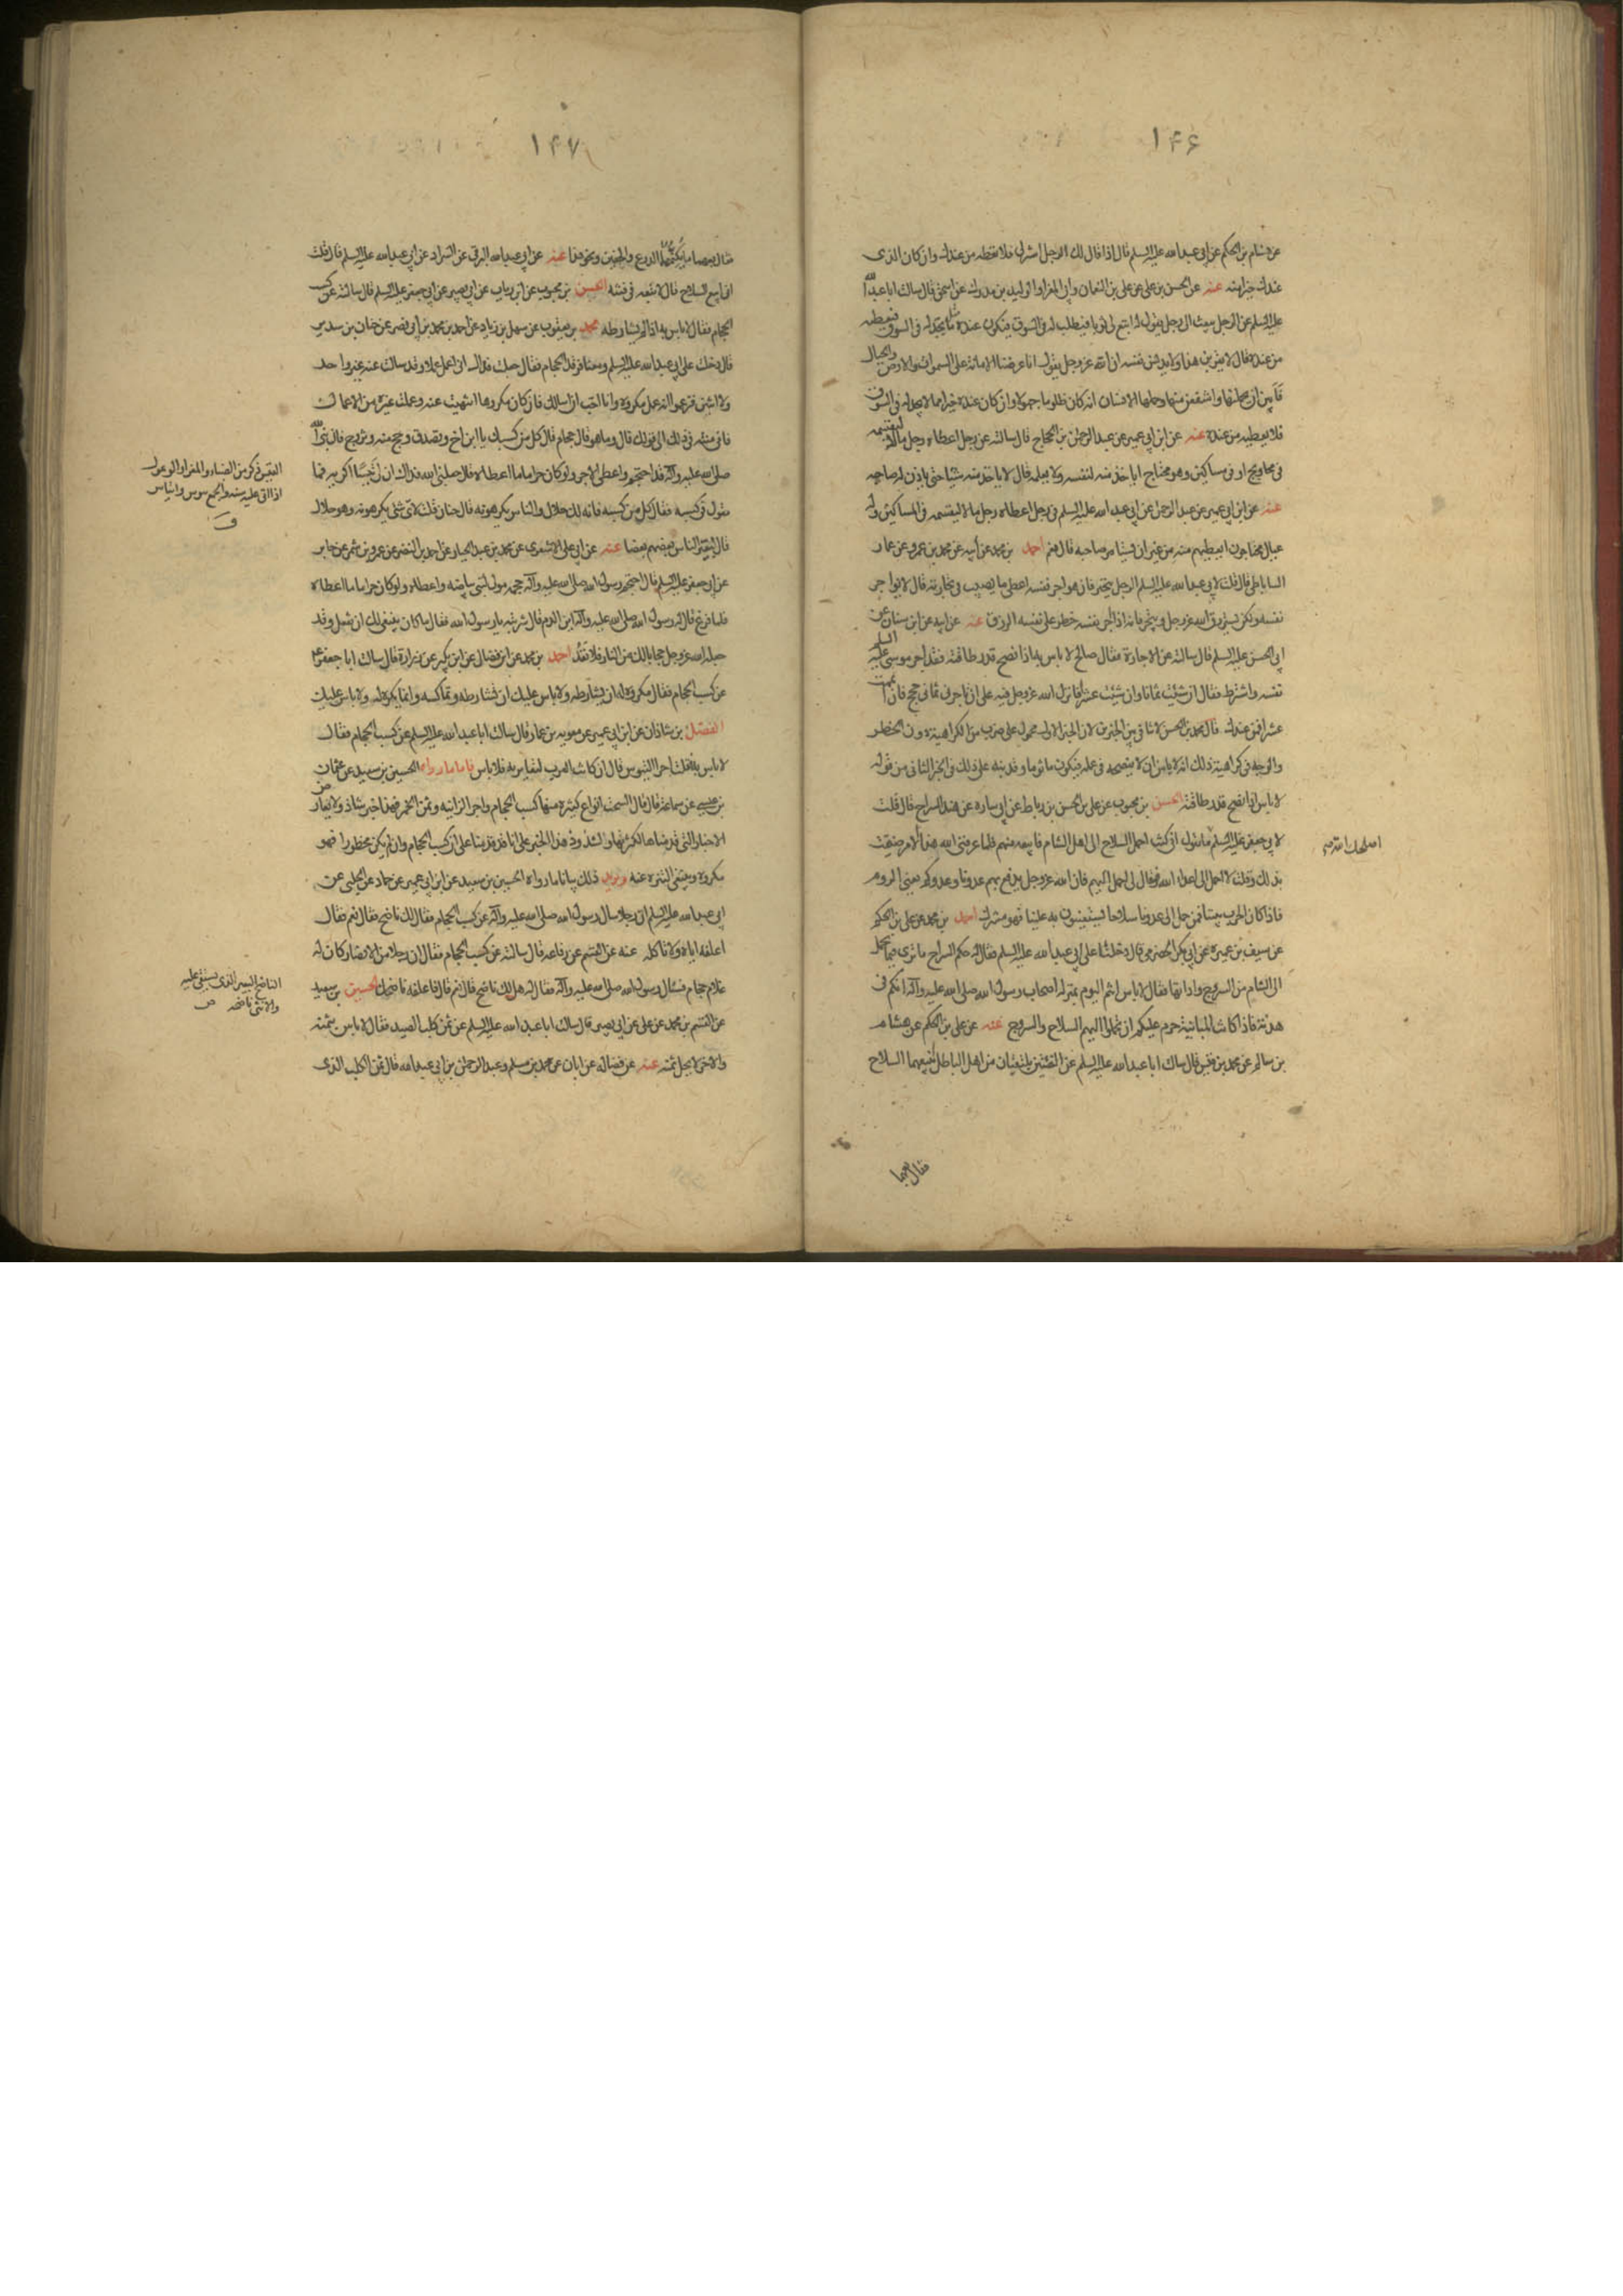 ١۴۶
عن هشام بن الحكم عن ابي عبدالله عليه السلم قال اذا قال لك الرجل اشتر لى فلا تعطه من عندك وان كان الذى
عندك خيرا منه عنه عن الحسن بن على عن على بن النعمان وابى المغرا والوليد بن مدرك عن اسحق قال سالت ابا عبد الله
عليه السلم عن الرجل يبعث الى الرجل يقول له ابتع لى ثوبا فيطلب له فى السوق فيكون عنده مثل ما يجد له فى السوق فيعطيه
من عنده فقال لا يقربن هذا ولا يدنس نفسه ان الله عزوجل يقول انا عرضنا الامانة على السموات والارض والجبال
فابين ان يحملنها واشفقن منها وحملها الانسان انه كان ظلوما جهولا وان كان عنده خيرا مما لا يجد له فى السوق
فلا يعطيه من عنده عنه عن ابن ابي عمير عن عبد الرحمن بن الحجاج قال سالته عن رجل اعطاه رجل مالا ليقسمه
فى محاويج او فى مساكين وهو محتاج اياخذ منه لنفسه ولا يعلمه قال لا ياخذ منه شيئا حتى ياذن له صاحبه
عنه عن ابن ابي عمير عن عبد الرحمن عن ابي عبد الله عليه السلم فى رجل اعطاه رجل مالا ليقسمه فى المساكين وله
عيال محتاجون ايعطيهم منه من غير ان يستامر صاحبه قال نعم احمد بن محمد عن أبيه عن محمد بن عمرو عن عمار
الساباطى قال قلت لابي عبد الله عليه السلم الرجل يتجر فان هو اجر نفسه اعطى ما يصيب فى تجارته قال لا يواجر
نفسه ولكن يسترزق الله عزوجل ويتجر فانه اذا اجر نفسه حظر على نفسه الرزق عنه عن ابيه عن ابن سنان عن
ابي الحسن عليه السلم قال سالته عن الاجارة فقال صالح لا باس به اذا نصح قدر طاقته فقد اجر موسى عليه السلم
نفسه واشترط فقال ان شئت ثمانا وان شئت عشرا فانزل الله عزوجل فيه على ان تاجرنى ثمانى حجج فان اتممت
عشرا فمن عندك قال محمد بن الحسن لا تنافى بين الخبرين لان الخبر الاول محمول على ضرب من الكراهية دون الحظر
والوجه فى كراهية ذلك انه لا يامن ان لا ينصحه فى عمله فيكون ماثوما وقد نبه على ذلك فى الخبر الثانى من قوله
لا باس اذا نصح قدر طاقته الحسن بن محبوب عن على بن الحسن بن رباط عن ابي ساره عن هند السراج قال قلت
لابي جعفر عليه السلم ما تقول انى كنت احمل السلاح الى اهل الشام فابيعه منهم فلما عرفنى الله هذا الامر ضقت
بذلك وقلت لا احمل الى اعداء الله فقال لى احمل اليهم فان الله عزوجل يدفع بهم عدونا وعدوكم يعنى الروم
فاذا كان الحرب بيننا فمن حمل الى عدونا سلاحا يستعينون به علينا فهو مشرك احمد بن محمد عن على بن الحكم
عن سيف بن عميرة عن ابي بكر الحضرمى قال دخلنا على ابي عبد الله عليه السلم فقال له حكم السراج ما ترى فيما يحمل
الى الشام من السروج واداتها فقال لا باس انتم اليوم بمنزلة اصحاب رسول الله صلى الله عليه وآله انكم فى
هدنة فاذا كانت المباينة حرم عليكم ان تحملوا اليهم السلاح والسروج عنه عن على بن الحكم عن هشام
بن سالم عن محمد بن قيس قال سالت ابا عبد الله عليه السلم عن الفئتين يلتقيان من اهل الباطل نبيعهما السلاح
فقال بعهما
١۴٧
فقال بعهما ما يكنهما الدرع والخفين ونحو هذا عنه عن ابي عبد الله البرقى عن السراد عن ابي عبد الله عليه السلم قال قلت
انى ابيع السلاح قال لا تبعه فى فتنه الحسن بن محبوب عن ابن رياب عن ابي بصير عن ابي جعفر عليه السلم قال سالته عن كسب
الحجام فقال لا باس به اذا لم يشارطه محمد بن يعقوب عن سهل بن زياد عن احمد بن محمد بن ابي نصر عن حنان بن سدير
قال دخلت على ابي عبد الله عليه السلم ومعنا فرقد الحجام فقال جعلت فداك انى اعمل عملا وقد سالت عنه غير واحد
ولا اثنين فزعموا انه عمل مكروه وانا احب ان اسالك فان كان مكروها انتهيت عنه وعملت غيره من الاعمال
فانى منته فى ذلك الى قولك قال وما هو قال حجام قال كل من كسبك يا ابن اخ وتصدق وحج منه وتزوج فان نبى الله
صلى الله عليه وآله قد احتجم واعطى الاجر ولو كان حراما ما اعطاه قال جعلنى الله فداك ان لى تيسا اكريه فما
تقول فى كسبه فقال كل من كسبه فانه لك حلال والناس يكرهونه قال حنان قلت لاى شئ يكرهونه وهو حلال
قال لتعيير الناس بعضهم بعضا عنه عن ابي على الاشعرى عن محمد بن عبد الجبار عن احمد بن النضر عن عمرو بن شمر عن جابر
عن ابي جعفر عليه السلم قال احتجم رسول الله صلى الله عليه وآله حجمه مولى لبنى بياضه واعطاه ولو كان حراما ما اعطاه
فلما فرغ قال له رسول الله صلى الله عليه وآله اين الدم قال شربته يا رسول الله فقال ما كان ينبغى لك ان تفعل وقد
جعله الله عزوجل حجابا لك من النار فلا تعد احمد بن محمد عن ابن فضال عن ابن بكير عن زرارة قال سالت ابا جعفر ع
عن كسب الحجام فقال مكروه له ان يشارطه ولا باس عليك ان تشارطه وتماكسه وانما يكره له ولا باس عليك
الفضل بن شاذان عن ابن ابي عمير عن معويه بن عمار قال سالت ابا عبد الله عليه السلم عن كسب الحجام فقال
لا باس به قلت اجر التيوس قال ان كانت العرب لتعاير به فلا باس فاما ما رواه الحسين بن سعيد عن عثمان
بن عيسى عن سماعة قال قال السحت انواع كثيره منها كسب الحجام واجر الزانيه وثمن الخمر فهذا خبر شاذ ولا يعارض
الاخبار التى قدمناها لكثرتها ولشذوذ هذا الخبر على انا قد قدمنا على ان كسب الحجام وان لم يكن محظورا فهو
مكروه وينبغى التنزه عنه ويزيد ذلك بيانا ما رواه الحسين بن سعيد عن ابن ابي عمير عن حماد عن الحلبى عن
ابي عبد الله عليه السلم ان رجلا سال رسول الله صلى الله عليه وآله عن كسب الحجام فقال لك ناضح فقال نعم فقال
اعلفه اياه ولا تاكله عنه عن القسم عن رفاعه قال سالته عن كسب الحجام فقال ان رجلا من الانصار كان له
غلام حجام فسال رسول الله صلى الله عليه وآله فقال له هل لك ناضح قال نعم قال فاعلفه ناضحك الحسين بن سعيد
عن القسم بن محمد عن على عن ابي بصير قال سالت ابا عبد الله عليه السلم عن ثمن كلب الصيد فقال لا باس بثمنه
والاخر لا يحل ثمنه عنه عن فضاله عن ابان عن محمد بن مسلم وعبد الرحمن بن ابي عبد الله قال ثمن الكلب الذى
التيس ذكر من الضباء والمعز او الوعول
اذا اتى عليه سنه والجمع تيوس واتياس
ق
الناضح البعير الذى يستقى عليه
والانثى ناضحه ص